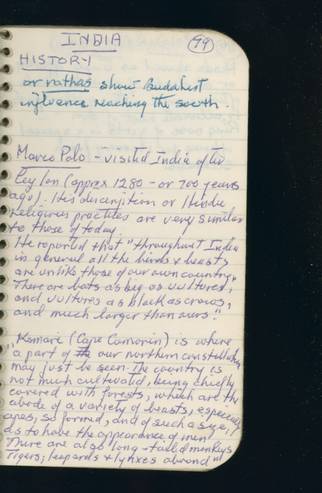 INDIA 79
HISTORY
or rathas show Buddhist
influence reaching the south.
Marco Polo - visited India after
Ceylon (approx 1280 - or 700 years
ago). His description of Hindu
Religious practices are very similar
to those of today.
He reported that "throughout India
in general all the birds & beasts
are unlike those of our own country,
There are bats as big as vultures,
and vultures as black as crows,
and much larger than ours."
Komari (Cape Comorin) is where
"a part of our northern constellation
may just be seen. The country is
not much cultivated, being chiefly
covered with forests, which are the
abode of a variety of beasts, especially
apes, so formed, and of such a size,
as to have the appearance of men
There are also long-tailed monkeys
Tigers, leopards & lynxes abound"